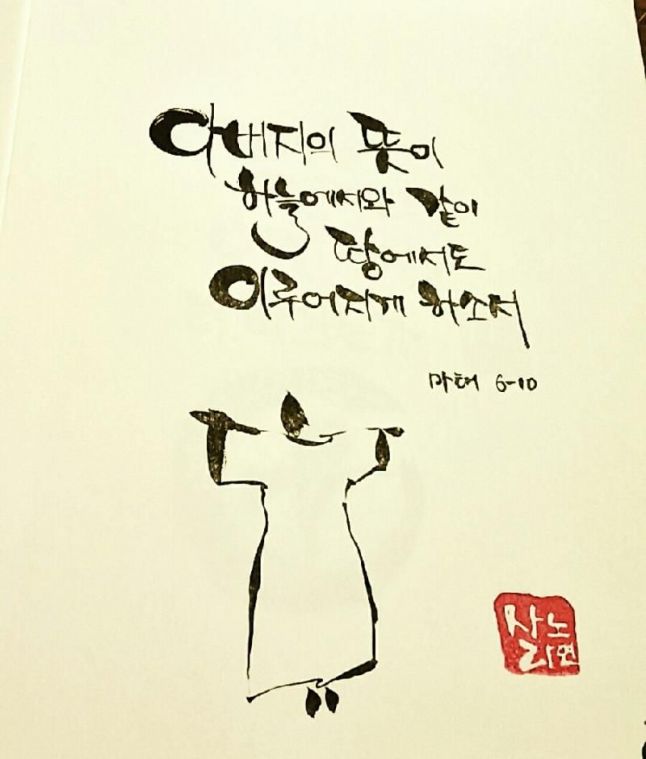 아버지의 뜻이
하늘에서와 같이
땅에서도
이루어지게 하소서
마태 6-10
사노
라연